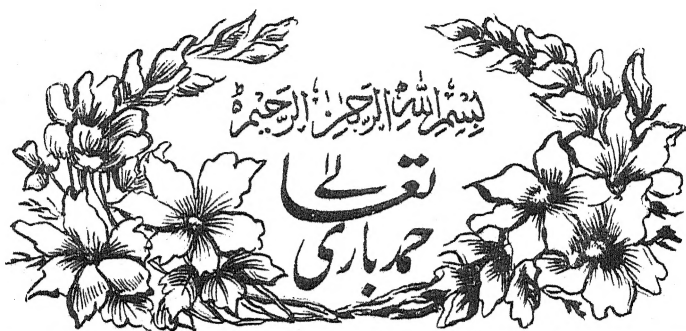 بِسْمِ اللّٰهِ الرَّحْمٰنِ الرَّحِیْمِ ہ
حمد باری
تعالےٰ